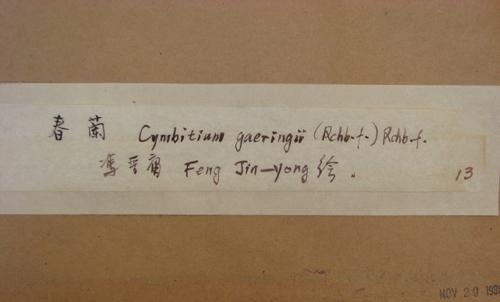 春蘭 Cymbitium gaeringii (Rchb.f.) Rchb.f.
馮晋庸 Feng Jin-yong 绘.
13
NOV 20 198